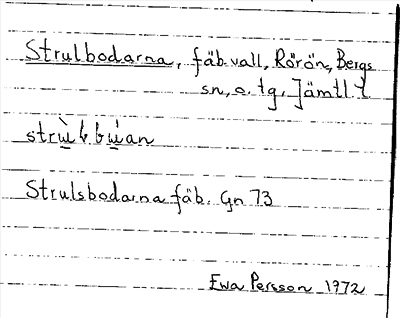 Strulbodarna, fäb.vall, Rörön, Bergs
sn, o. tg, Jämtl. l
strù̱l.bu̱̇an
Strulsbodarna fäb. Gn 73
Ewa Persson 1972